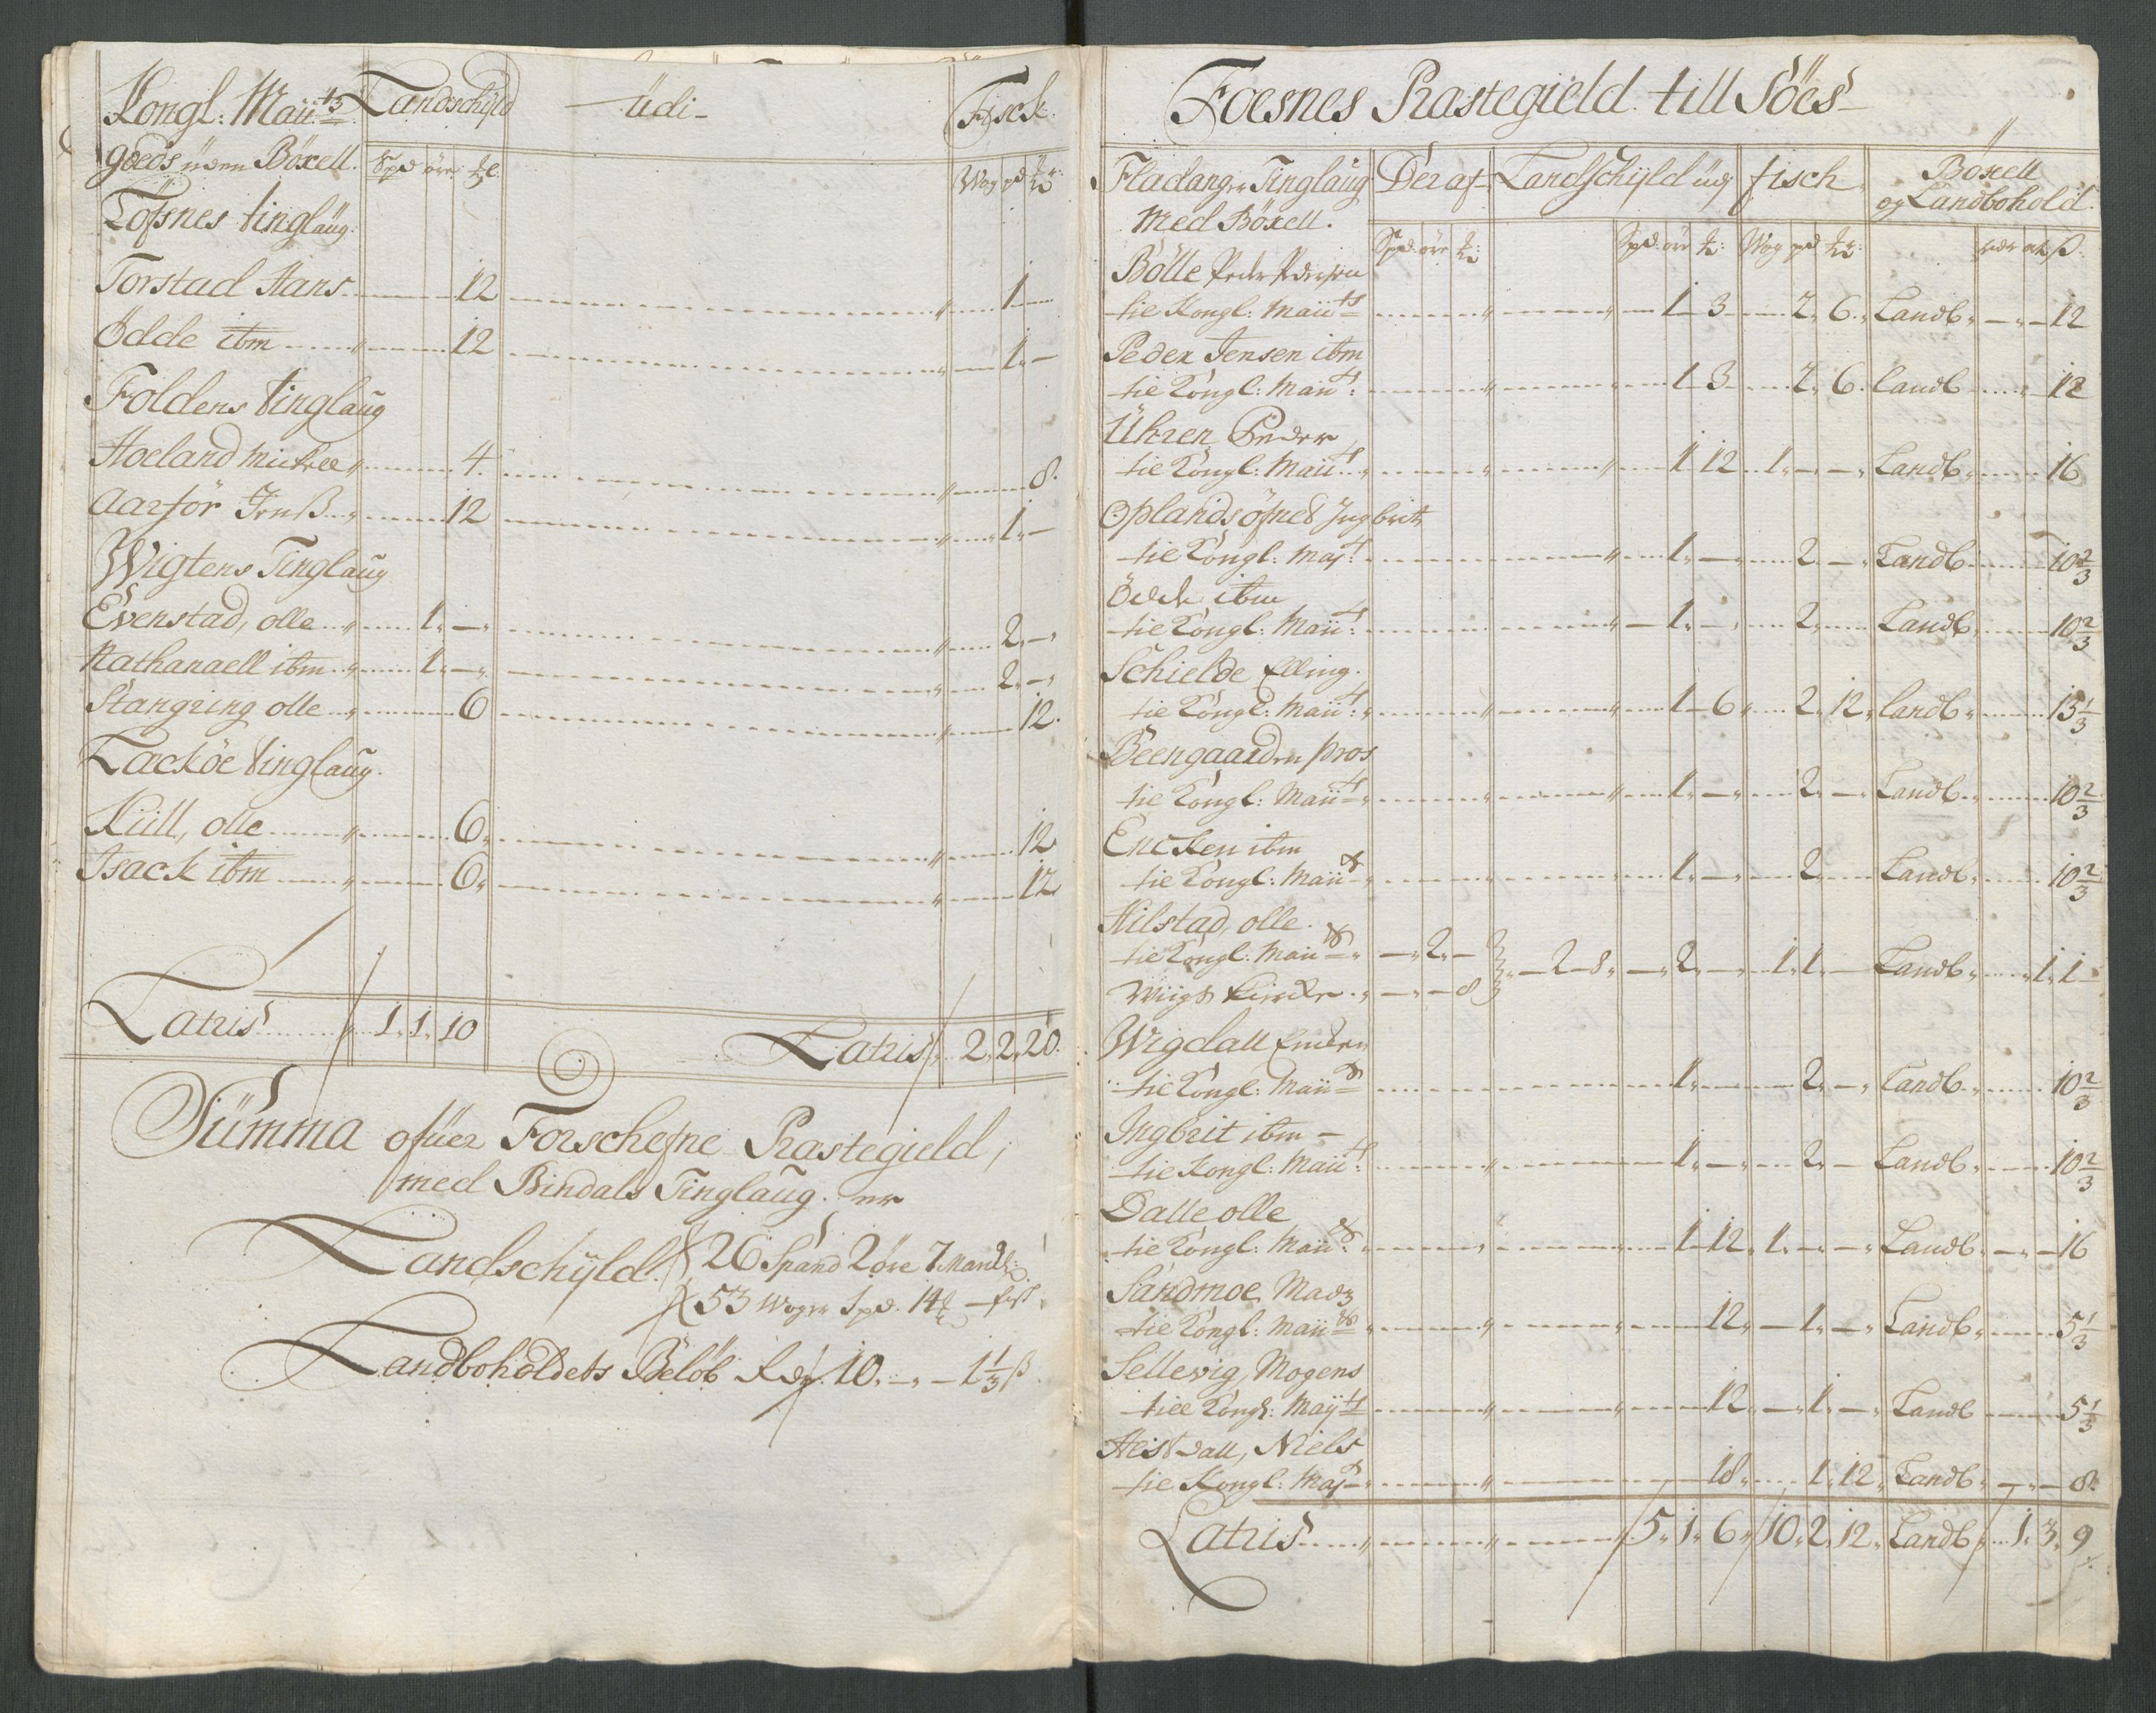 Kongl: Maii:ts Landschÿld üdi Fisck.
goeds üden Böxell. Spd öre Wog pd
Fosnes tinglaug.
Torstad Hans 12 1
Ödde ibm 12 1 –
Folders tinglaug
Hoeland Mickel 4. 8.
Aarför Jenß 12 1. –
Wigtens Tinglaug
Evenstad, olle 1. – 2. –
Nathanaell ibm 1. – 2. –
Stangring olle 6 12.
Lackõe tinglaug.
Küll, olle 6. 12
Isack ibm 6. 12
Latris 1. 1. 10 Latris 2. 2. 20.
Sümma ofüer Forschefne Præstegield,
med Bindals Tinglaug. er
Landschÿld 26 Spand 2 öre 7 Markl:
53 Woger 1 pd. 14 – fisk
Landboholdets Beløb Rdr. 10. – – 1 1/3 ß.
Foesnes Præstegield till Söes
Fladangr Tinglaug Der af Landschÿld üdj fisch Böxell
Med Böxell. og Landbohold.
Spd. öre Spd. öre Wog pd ß.
Bölle Peder Pedersen
tie Kongl: Maii:ts 1 3 2. 6. Landb. 12
Peder Jensen ibm
tie Kongl: Maii:ts 1 3 2. 6. Landb 12
Ühren Peder
tie Kongl: Maii:ts 1 12 1. – – Landb. 16
Oplandsöfned Ingbrit
tie Kongl: Maj:ts 1. – 2. – Landb 10 2/3
Ödde ibm
tie Kongl: Maii:ts 1. – 2. Landb. 10 2/3
Schielde Elling.
tie Kongl: Maii:ts 1 6. 2. 12. Landb. 13 1/3
Beengaarden pros
tie Kongl: Maii:ts 1. – 2. – Landb. 10 2/3
Encken ibm
tie Kongl: Maii:ts 1. – 2. Landb. 10 2/3
Hilstad, olle.
tie Kongl: Maii:ts – 2. – – 2 8. – 2. – 1. 1. – Landb. 1. 1
Wiigs Kircke. – – 8
Wigdall Encken
tie Kongl: Maii:ts 1. 2. – Landb. 10 2/3
Ingbrit ibm –
tie Kongl: Maii:ts 1. – 2. – Landb. 10 2/3
Dalle olle
tie Kongl: Maii:ts 1 12. 1. – – Landb. 16
Sandmoe Madz
tie Kongl: Maii:ts 12. – 1. – Landb. 5 1/3
Sellevig, Mogens
tiee Kongl: Maÿ:ts 12. – 1. – Landb 5 1/3
Heisdall, Niels
tie Kongl: Maj:ts 18. 1. 12. Landb. 8.
Latris 5. 1. 6. 10. 2. 12. Landb 1. 3. 9